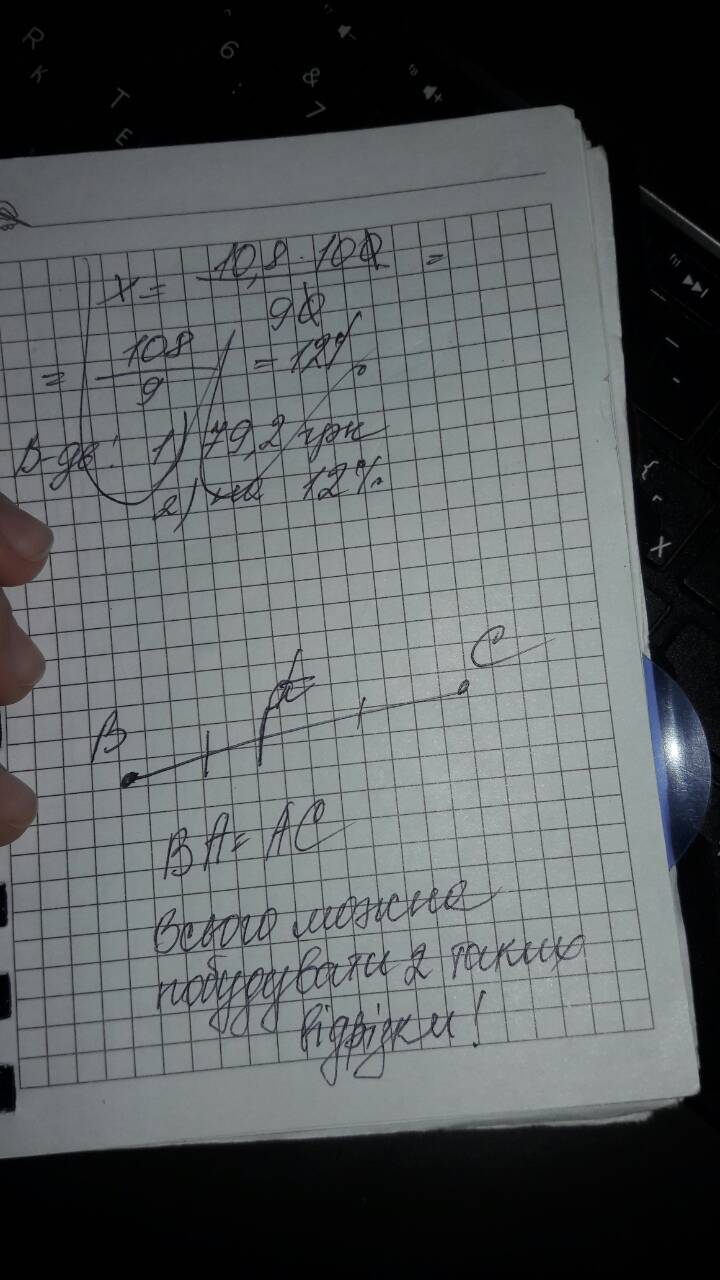 x = 10,8 · 100 / 90 =
= 108 / 9 = 12%
В-дь: 1) 79,2 грн
2) на 12%
C
A
B
BA = AC
Всього можна
побудувати 2 таких
відрізки!